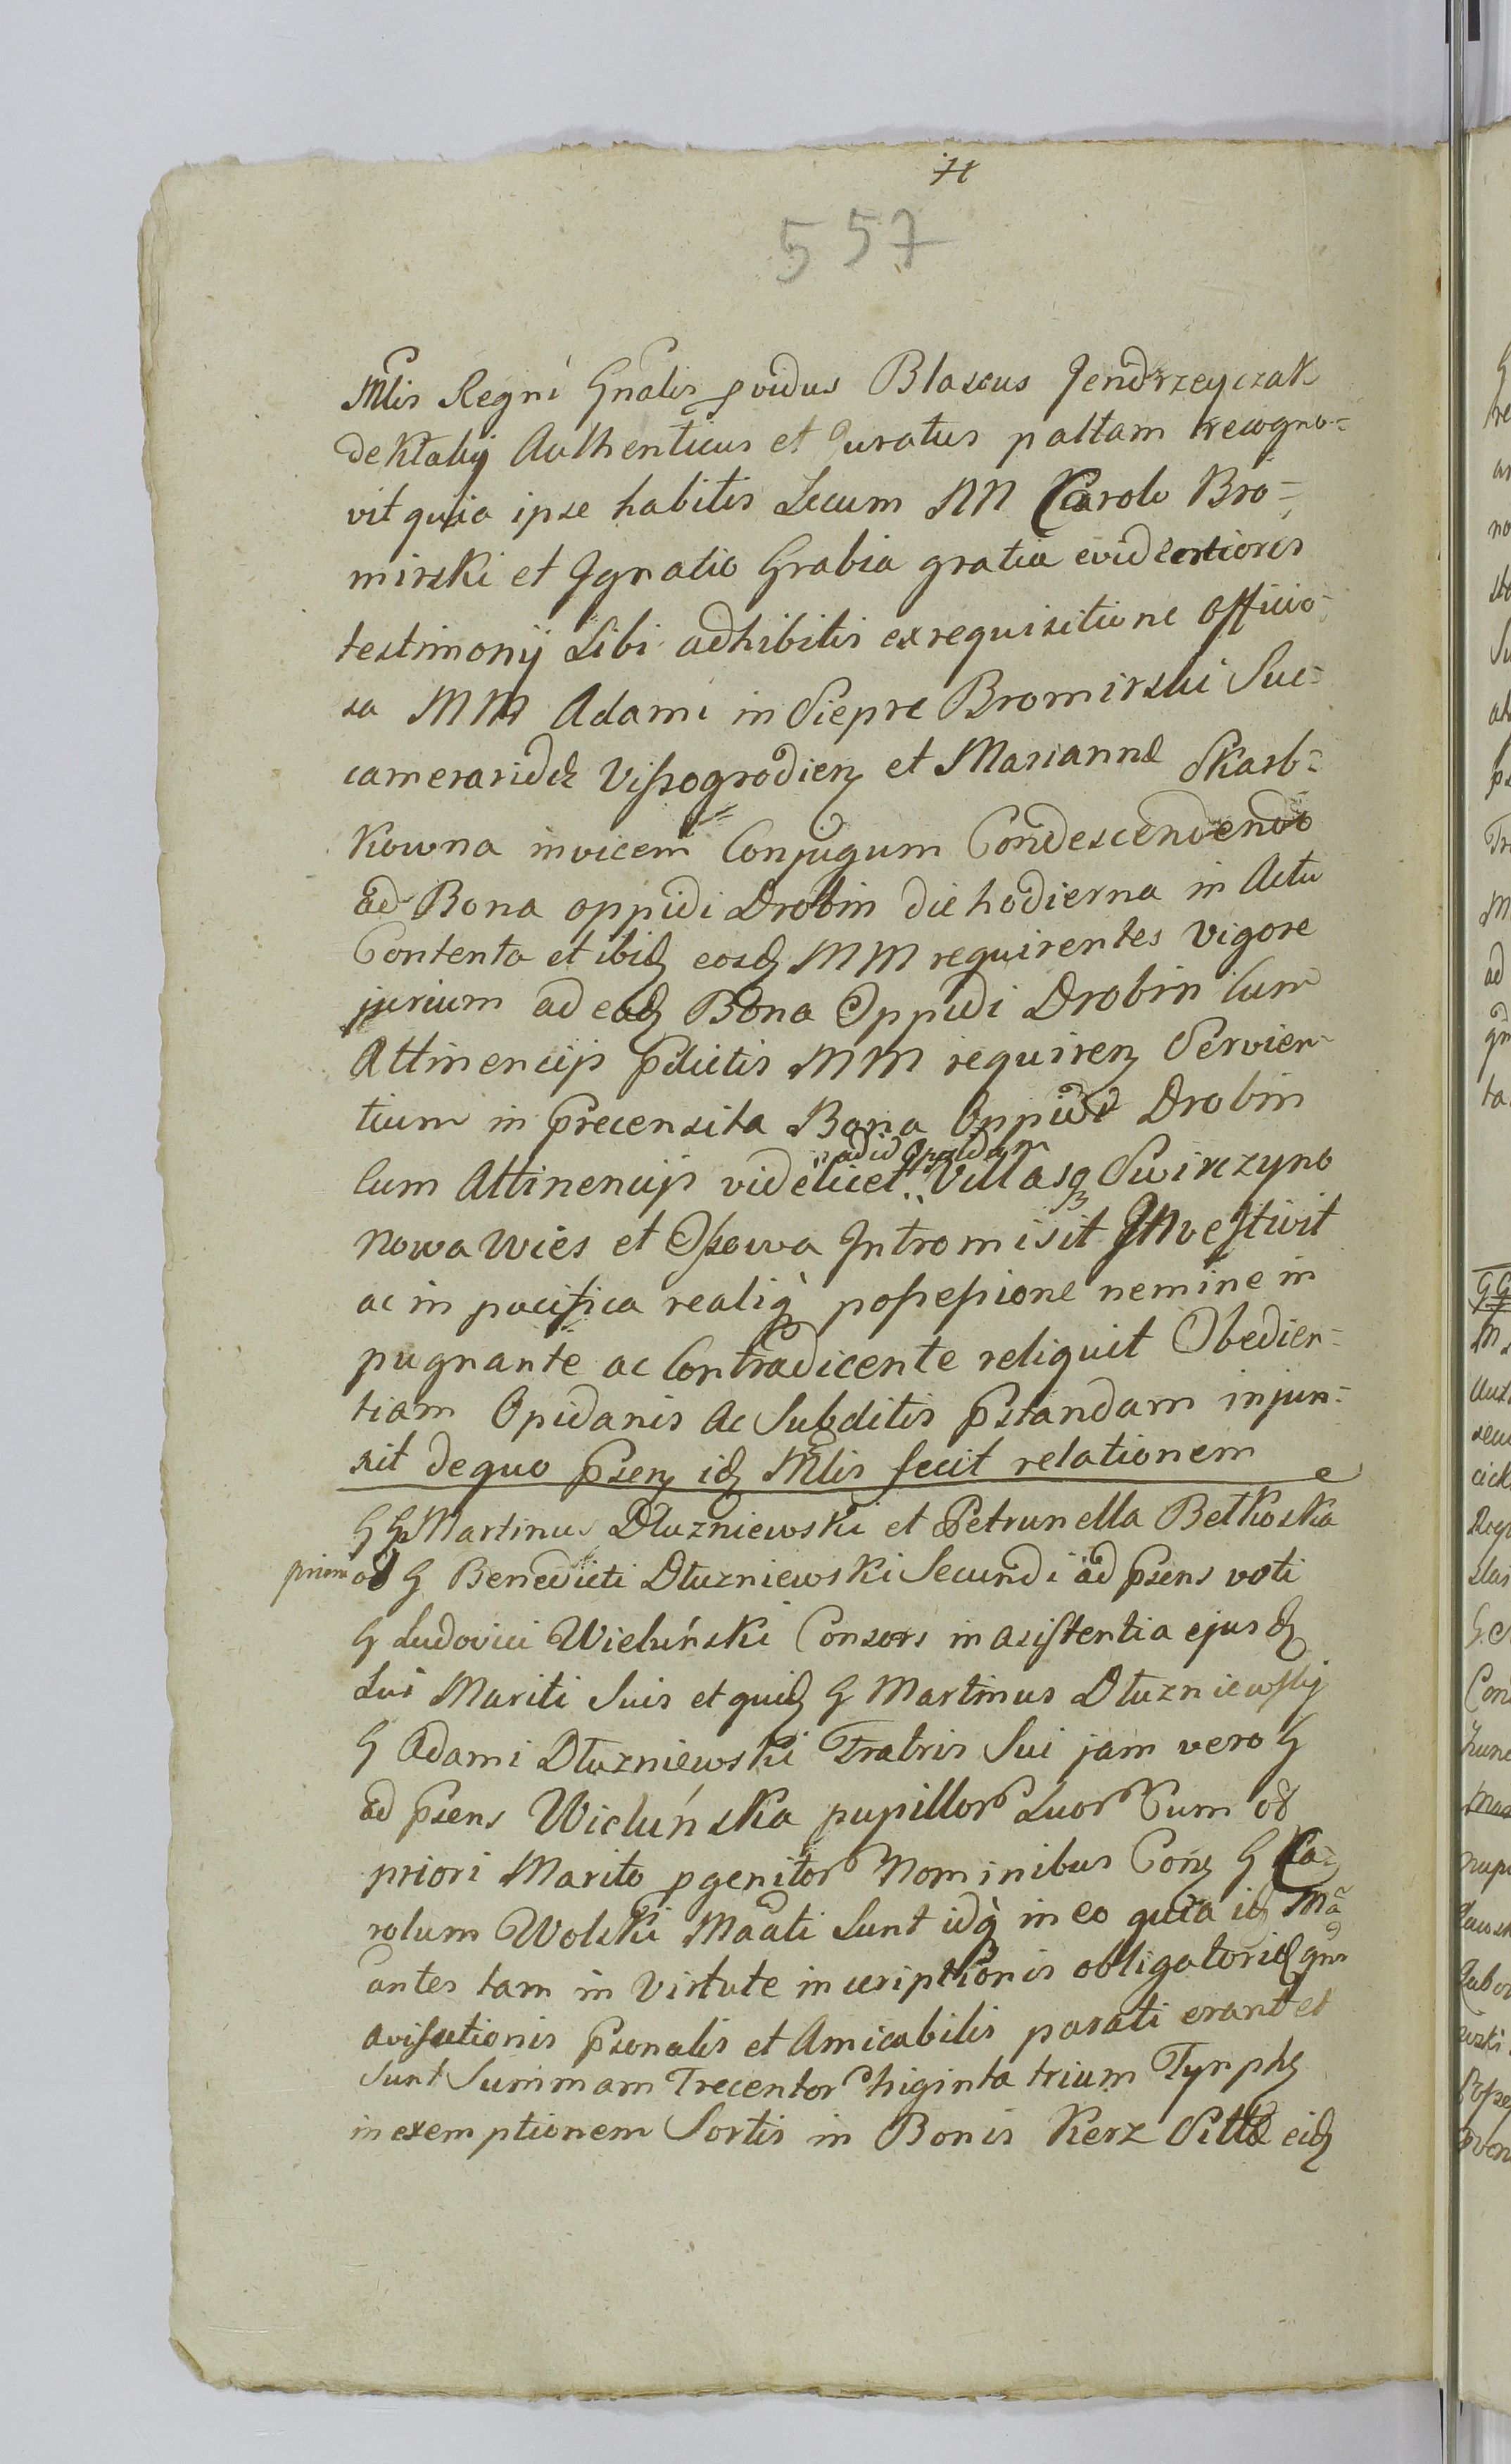 557
Mlis Regni Gnalis pvidus Blasius Jendrzeyczak
de Ktaky Authenticus et Juratus paltam recogno=
vit quia ipse habitis Secum NN Carolo Bro=
mirski et Ignatio Grabia gratia evidentioris
testimonij Sibi adhibitis ex requisitione officio=
sa MM Adami in Siepre Bromirski Suc=
cameraridæ Vissogrodien et Mariannæ Skarb=
kowna invicem Conjugum Condescendendo
ad Bona oppidi Drobin die hodierna in Actu
Contenta et ibid eosd MM requirentes vigore
jurium ad ead Bona Oppidi Drobin Cum
Attinencijs Pdictis MM requiren Servien=
tium in Precensita Bona Oppidi Drobin
ad id Opidum
Cum Attinencijs videlicet Villasq Swirczyno
Nowawies et Psowa Intromisit Investivit
ac in pacifica realiq possessione nemine in
pugnante ac Contradicente reliquit Obedien=
tiam Opidanis ac Subditis Pstandam injun=
xit de quo Psen id Mlis fecit relationem
GG Martinus Dłuzniewski et Petrunella Betkoska
primo G Benedicti Dłuzniewski Secundi ad Psens voti
G Ludovici Wieluński Consors in asistentia ejusd
Sui Mariti Suis et quid G Martinus Dłuzniewsky
G Adami Dłuzniewski Fratris Sui jam vero G
ad Psens Wieluńska pupillor Suor Cum
priori Marito pgenitor Nominibus Con G Ca=
rolum Wolski Maati Sunt idq in eo quia id Ma
antes tam in Virtute inscriptionis obligatoriæ qm
avisationis Psonalis et Amicabilis parati erant et
Sunt Summam Trecentor triginta trium Tymph
in exemptionem Sortis in Bonis Kerz Sittæ eid